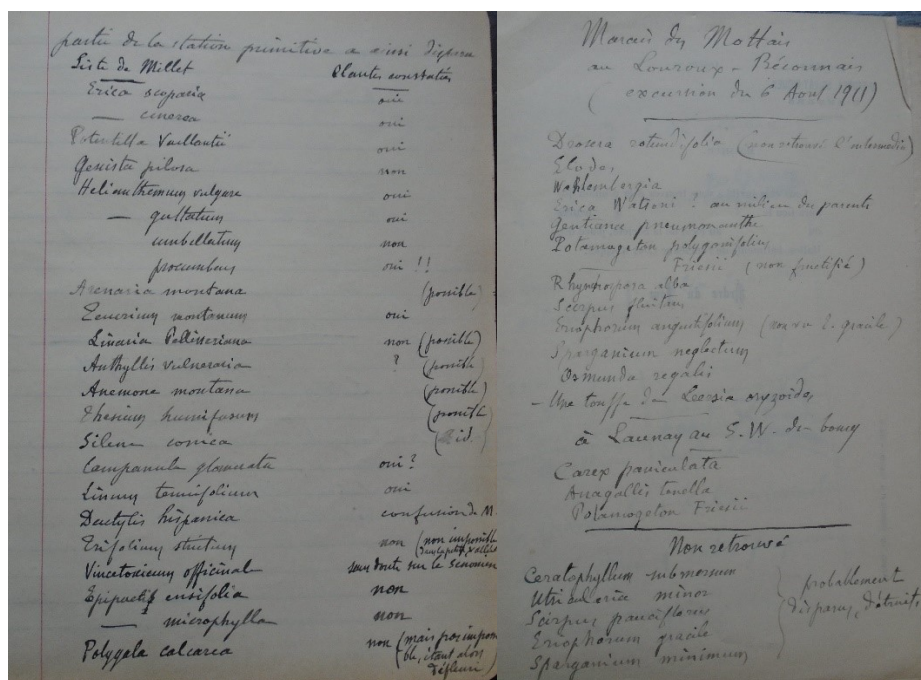 partie de la station primitive a ainsi disparu
Liste de Millet Plantes constatées
Erica scoparia oui
— cinerea oui
Potentilla Vaillantii oui
Genista pilosa non
Helianthemum vulgare oui
— guttatum oui
umbellatum non
procumbens oui !!
Arenaria montana (possible)
Teucrium montanum oui
Linaria Pellisseriana non (possible)
Anthyllis vulneraria ? (possible)
Anemone montana (possible)
Thesium humifusum (possible)
Silene conica (id.)
Campanula glomerata oui ?
Linum tenuifolium oui
Dactylis hispanica confusion de M.
Trifolium strictum non (non impossible
Vincetoxicum officinale sans doute sur le
Epipactis ensifolia non
— microphylla non
Polygala calcarea non (mais pas impossi
ble, étant alors
défleuri)
Marais des Mottais
au Louroux-Béconnais
(excursion du 6 Aout 1911)
Drosera rotundifolia (non retrouvé l'intermedia)
Elodes
Wahlenbergia
Erica Watsoni ? au milieu des parents
Gentiana pneumonanthe
Potamogeton polygonifolius
Friesii (non fructifié)
Rhynchospora alba
Scirpus fluitans
Eriophorum angustifolium (non vu le gracile)
Sparganium neglectum
Osmunda regalis
— Une touffe de Leersia oryzoides
à Launay au S.W. du bourg
Carex paniculata
Anagallis tenella
Potamogeton Friesii
Non retrouvé
Ceratophyllum submersum
Utricularia minor
Scirpus pauciflorus
Eriophorum gracile
Sparganium minimum
probablement
disparus, détruits